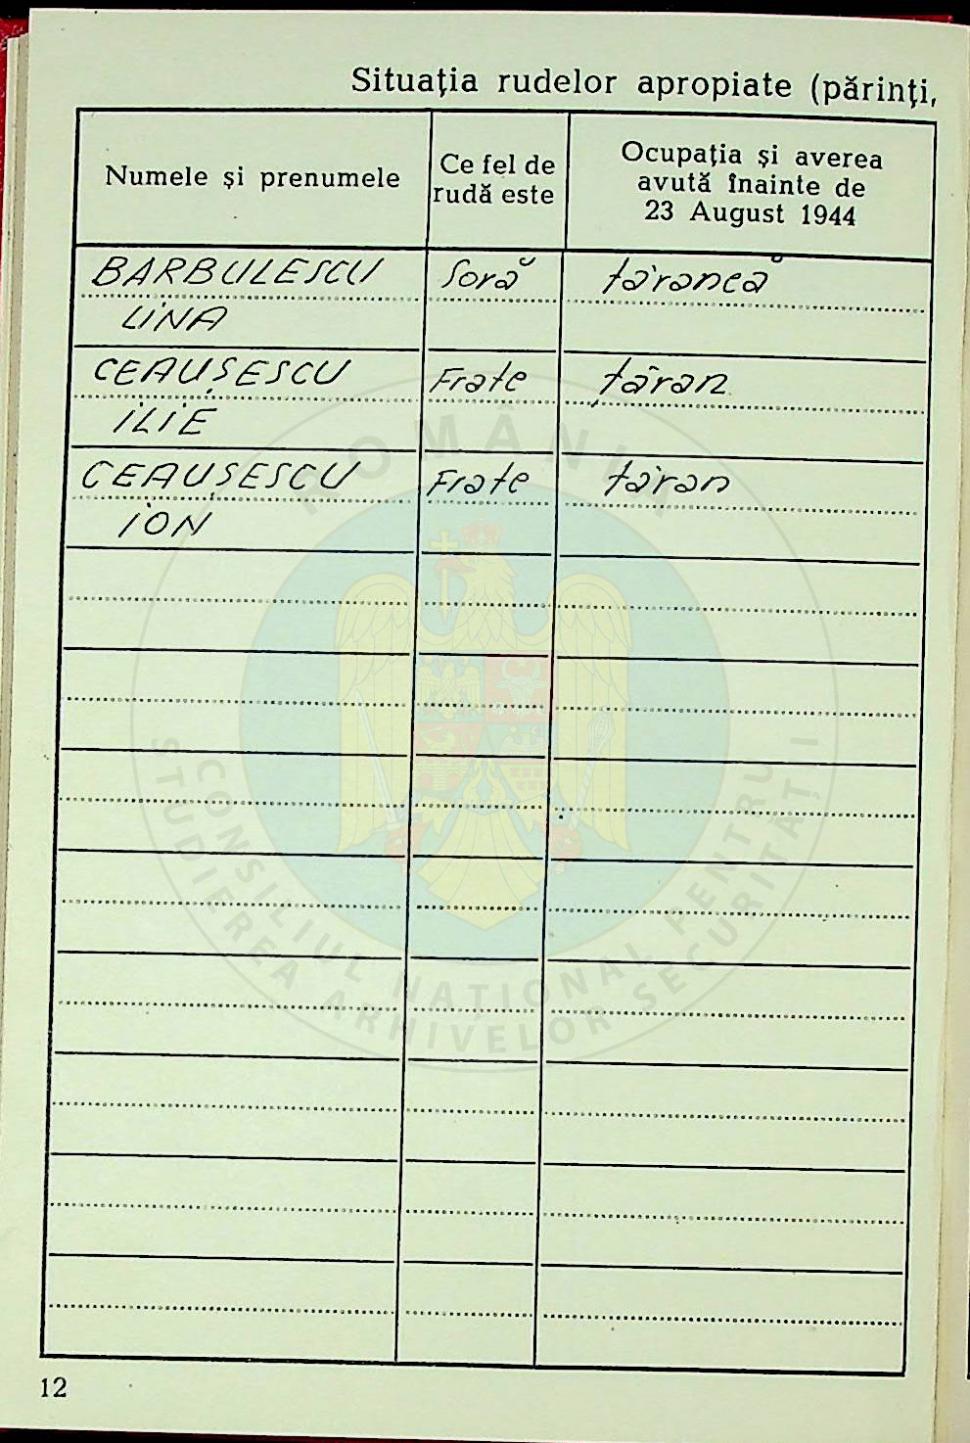 Situația rudelor apropiate (părinți,
Numele și prenumele
Ce fel de
rudă este
Ocupația și averea
avută înainte de
23 August 1944
BARBULESCU
LINA
Soră
tărancă
CEAUȘESCU
ILIE
Frate
țăran
CEAUȘESCU
ION
Frate
tăran
ROMÂNIA
CONSILIUL NAȚIONAL PENTRU
STUDIEREA ARHIVELOR SECURITĂȚII
12